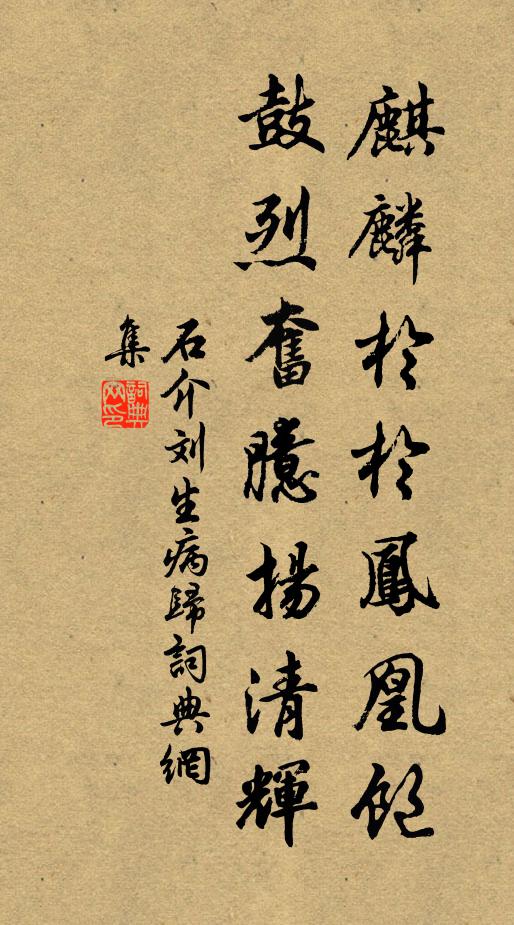 麒麟於於鳳凰飽
鼓烈奮臆揚清輝
石介刘生病歸詞典網
集
詞典
网印